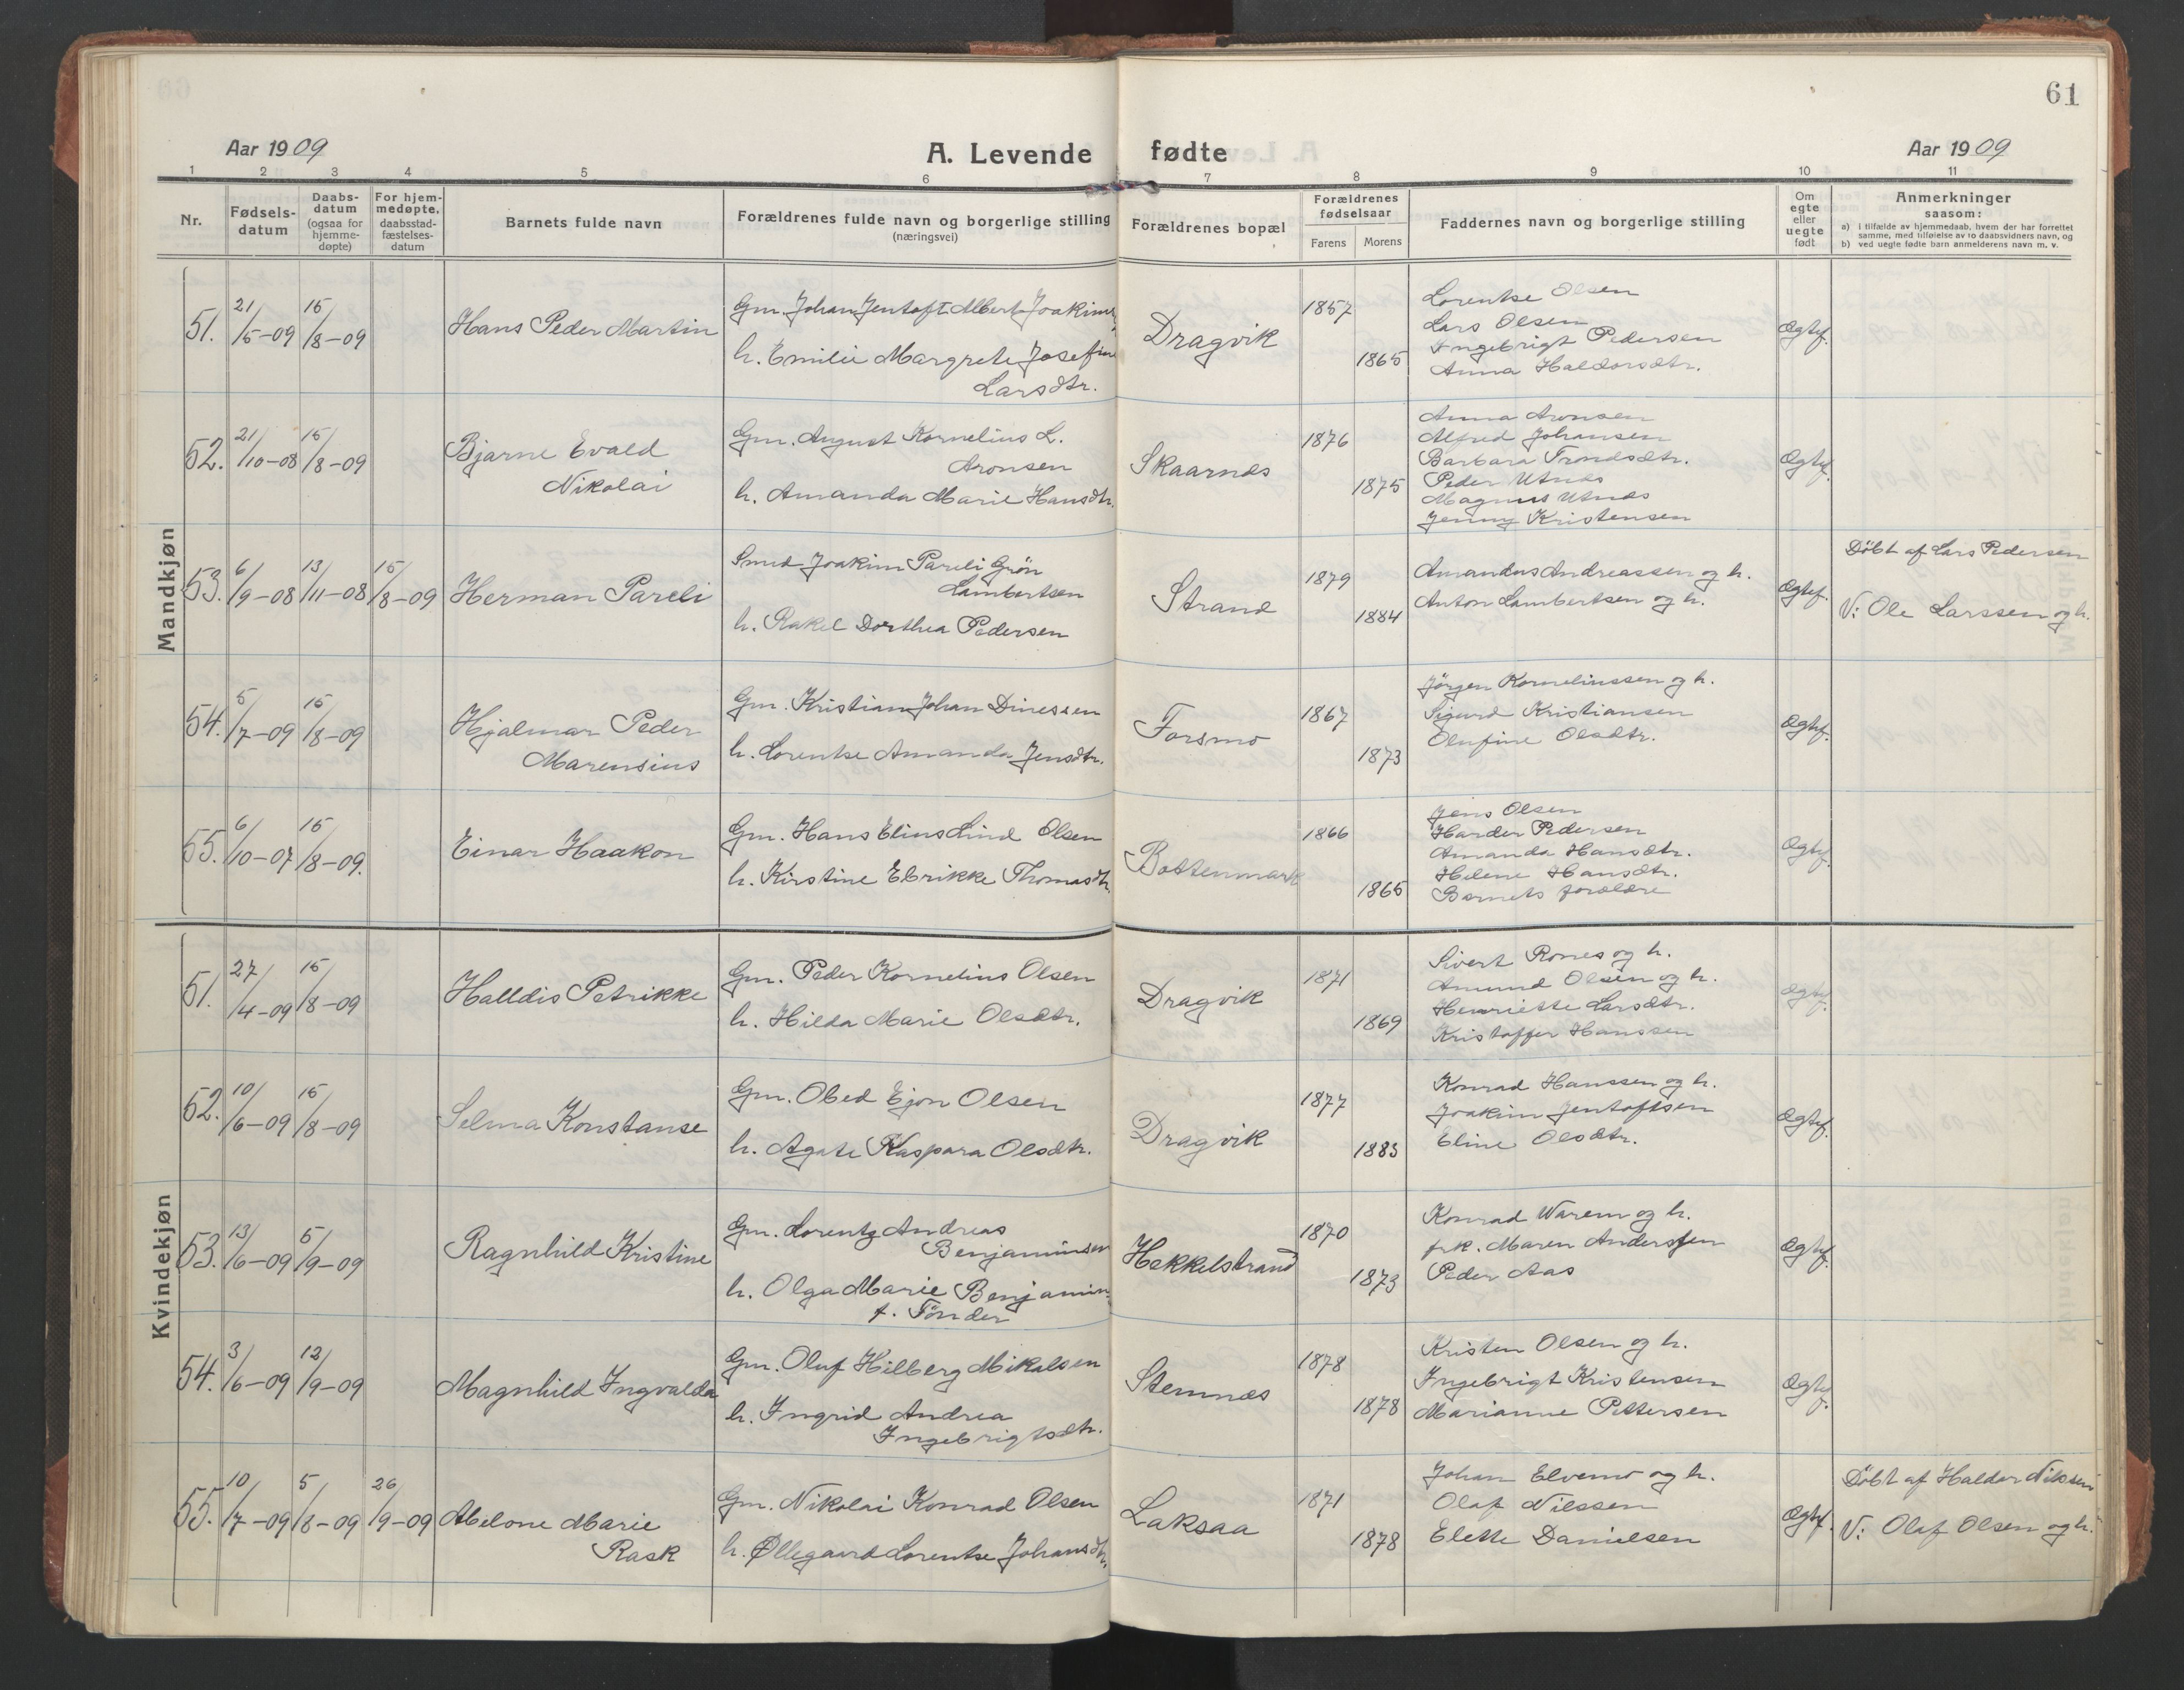 61
Aar 1909
A. Levende fødte
Aar 1909
1 2 3 4 5 6 7 8 9 10 11
Nr.
Fødsels-
datum
Daabs-
datum
(ogsaa for
hjemme-
døpte)
For hjem-
medøpte,
daabsstad-
fæstelses-
datum
Barnets fulde navn
Forældrenes fulde navn og borgerlige stilling
(næringsvei)
Forældrenes bopæl
Forældrenes
fødselsaar
Farens Morens
Faddernes navn og borgerlige stilling
Om
egte
eller
uegte
født
Anmerkninger
saasom:
a) i tilfælde av hjemmedaab, hvem der har forrettet
samme, med tilføielse av to daabsvidners navn, og
b) ved uegte fødte barn anmelderens navn m. v.
Mandkjøn
51. 21/5-09 15/8-09
Hans Peder Martin
Gm. Johan Jentoft Albert Joakims
h. Emilie Margrete Josefine
Larsdtr.
Dragvik
1857
1865
Lorentse Olsen
Lars Olsen
Ingebrigt Pedersen
Anna Haldorsdtr.
Ægtef.
52. 21/10-08 15/8-09
Bjarne Evald
Nikolai
Gm. August Kornelius L.
Aronsen
h. Amanda Marie Hansdtr.
Skaarnæs
1876
1875
Anna Aronsen
Alfred Johansen
Barbara Trondsdtr.
Peder Utnæs
Magnus Utnæs
Jenny Kristensen
Ægtef.
53. 6/9-08 13/11-08 15/8-09
Herman Pareli
Smed Joakim Pareli Grön
Lambertsen
h. Rakel Dorthea Pedersen
Strand
1879
1884
Amandus Andreassen og h.
Anton Lambertsen og h.
Ægtef.
Döbt af Lars Pedersen
V: Ole Larssen og h.
54. 5/7-09 15/8-09
Hjalmar Peder
Marensius
Gm. Kristian Johan Dinessen
h. Lorentse Amanda Jensdtr.
Forsmo
1867
1873
Jörgen Korneliussen og h.
Sigurd Kristiansen
Olufine Olsdtr.
Ægtef.
55. 6/10-07 15/8-09.
Einar Haakon
Gm. Hans Elius Lind Olsen
h. Kirstine Ebrikke Thomasdtr.
Bottenmark
1866
1865
Jens Olsen
Harder Pedersen
Amanda Hansdtr.
Helene Hansdtr.
Barnets forældre
Ægtef.
Kvindekjøn
51. 27/4-09 15/8-09
Halldis Petrikke
Gm. Peder Kornelius Olsen
h. Hilda Marie Olsdtr.
Dragvik
1871
1869
Sivert Rones og h.
Amund Olsen og h.
Henriette Larsdtr.
Kristoffer Hanssen
Ægtef.
52. 10/6-09 15/8-09
Selma Konstanse
Gm. Obed Ejon Olsen
h. Agate Kaspara Olsdtr.
Dragvik
1877
1883
Konrad Hanssen og h.
Joakim Jentoftsen
Eline Olsdtr.
Ægtef.
53. 13/6-09 5/9-09
Ragnhild Kristine
Gm. Lorentz Andreas
Benjaminsen
h. Olga Marie Benjamin
f. Tönder
Hekkelstrand
1870
1873
Konrad Warem og h.
frk. Maren Anderssen
Peder Aas
Ægtef.
54. 3/6-09 12/9-09
Magnhild Ingvalda
Gm. Oluf Hilberg Mikalsen
h. Ingrid Andrea
Ingebrigtsdtr.
Stemnæs
1878
1878
Kristen Olsen og h.
Ingebrigt Kristensen
Marianne Pettersen
Ægtef.
55. 10/7-09 5/8-09 26/9-09
Abelone Marie
Rask
Gm. Nikolai Konrad Olsen
h. Øllegaard Lorentse Johansdtr.
Laksaa
1871
1878
Johan Elvemo og h.
Olaf Nilssen
Elette Danielsen
Ægtef.
Döbt af Haldor Nilssen
V: Olaf Olsen og h.